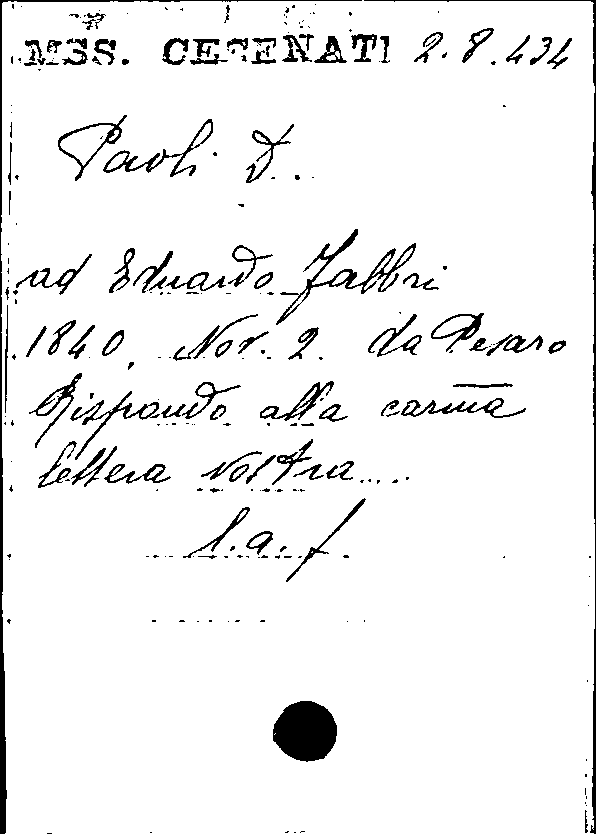 MSS. CESENATI 2.8.434
Paoli D.
ad Eduardo Fabbri
1840, Nov. 2. da Pesaro
Rispondo alla carma
lettera vostra....
l.a.f.